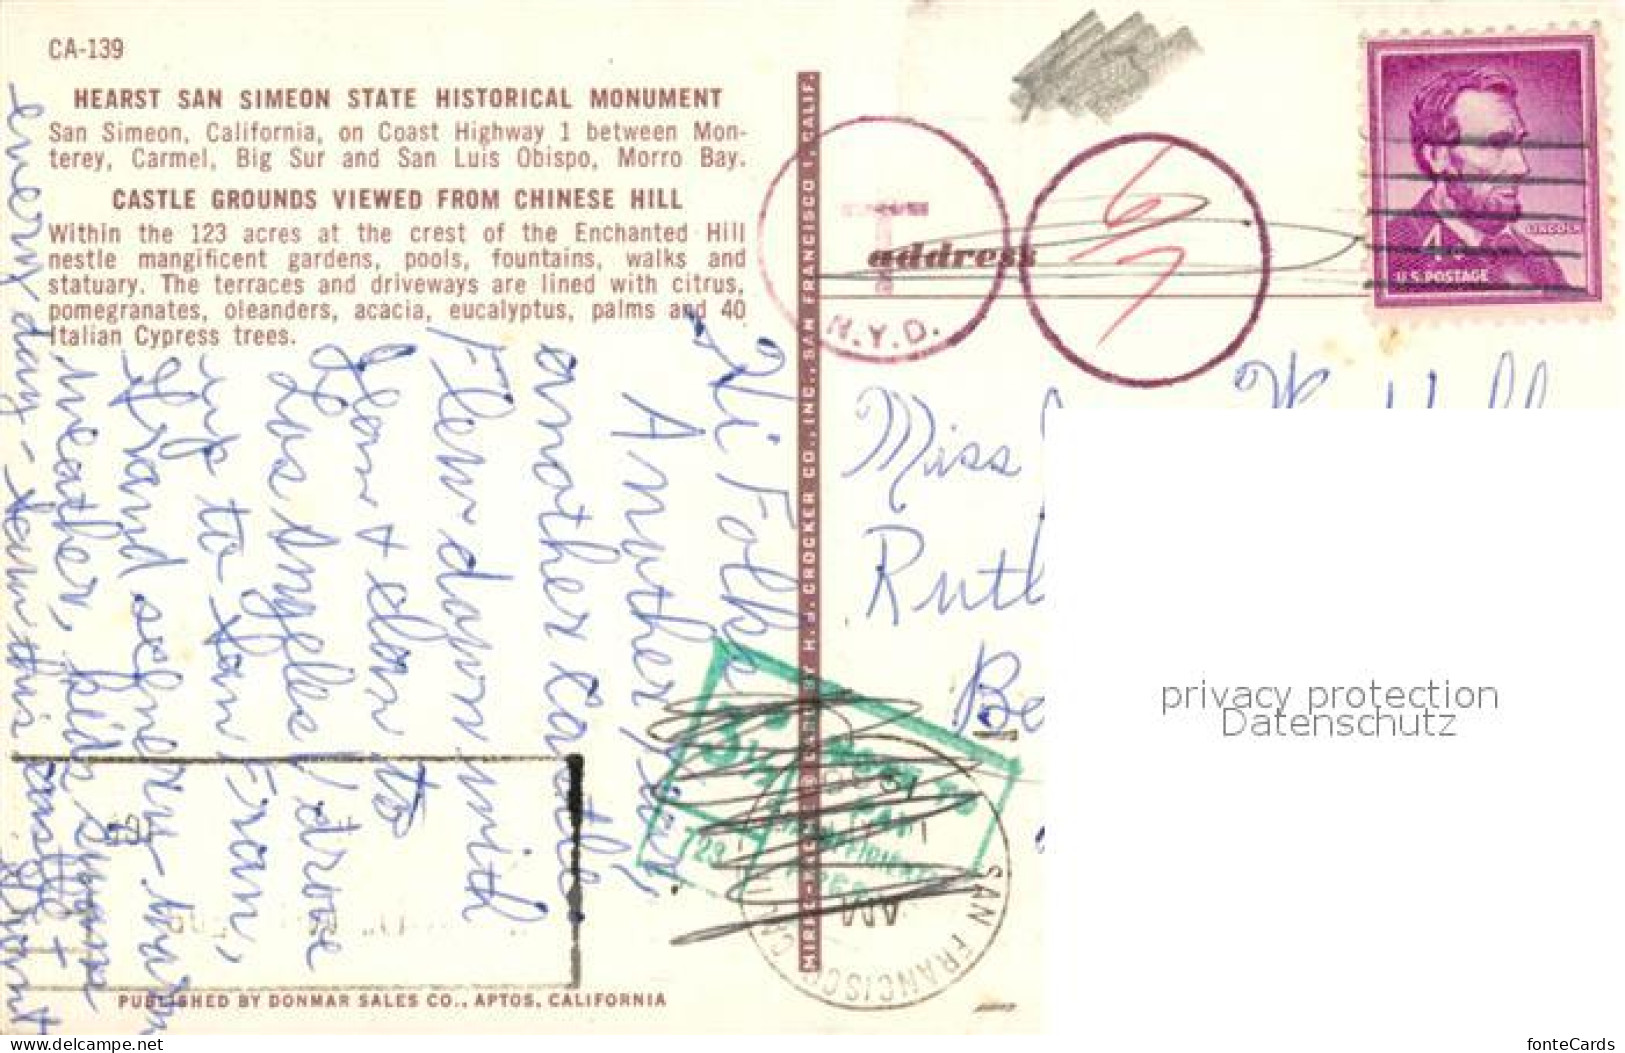 CA-139
HEARST SAN SIMEON STATE HISTORICAL MONUMENT
San Simeon, California, on Coast Highway 1 between Mon-
terey, Carmel, Big Sur and San Luis Obispo, Morro Bay.
CASTLE GROUNDS VIEWED FROM CHINESE HILL
Within the 123 acres at the crest of the Enchanted Hill
nestle mangificent gardens, pools, fountains, walks and
statuary. The terraces and driveways are lined with citrus,
pomegranates, oleanders, acacia, eucalyptus, palms and 40
Italian Cypress trees.
Hi Folks
Another year,
another castle
Flew down with
Jean & Clan to
Los Angeles, drove
up to San Fran,
Grand scenery - warm
weather, plids
every day - saw this castle &
PUBLISHED BY DONMAR SALES CO., APTOS, CALIFORNIA
MIRRO-KROME CARD BY H. S. CROCKER CO., INC., SAN FRANCISCO 1, CALIF.
address
N.Y.D.
67
LINCOLN
4¢
U.S. POSTAGE
Miss
Ruth
Be
SAN FRANCISCO CA
723
privacy protection
Datenschutz
www.delcampe.net
fonteCards